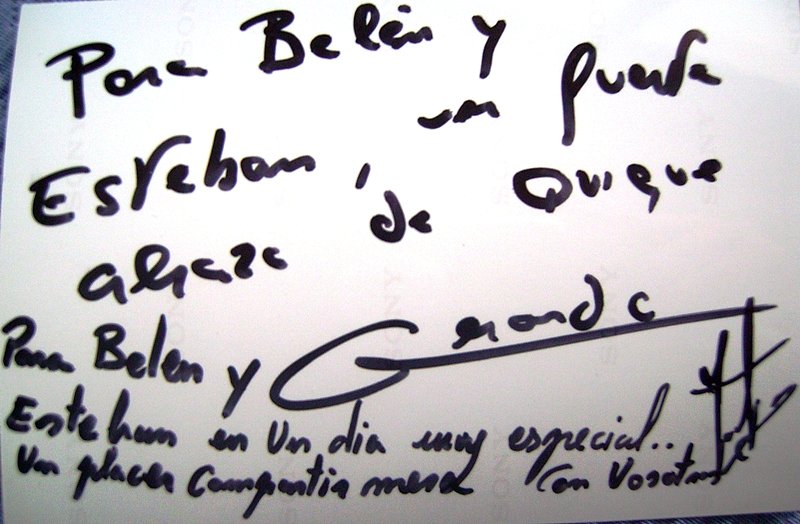 Para Belén y
Esteban, un fuerte
abrazo de Quique
Para Belén y
Esteban en un dia muy especial..
un placer compartir mesa con vosotros
SONY